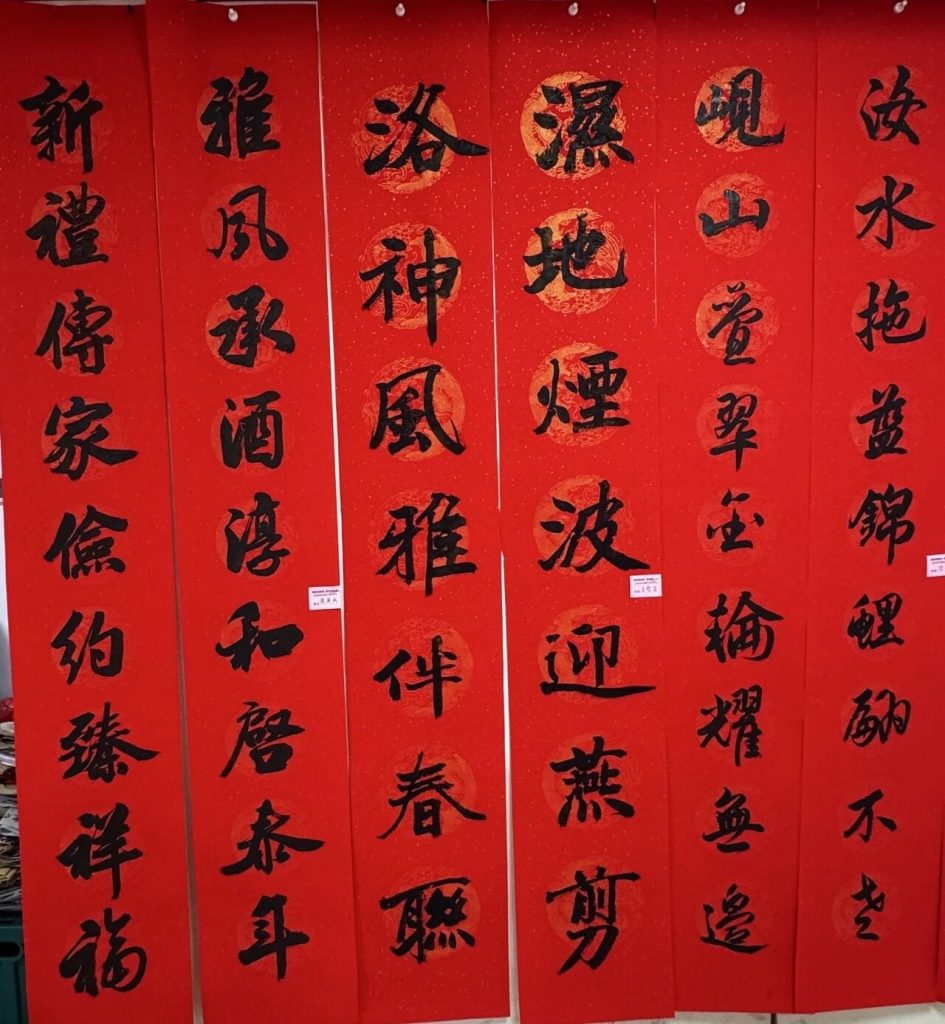 汝水拖藍錦鯉翩不老
峴山疊翠金輪耀無邊
濕地煙波迎燕剪
洛神風雅伴春聯
雅風承酒淳和啟泰年
新禮傳家儉約臻祥福